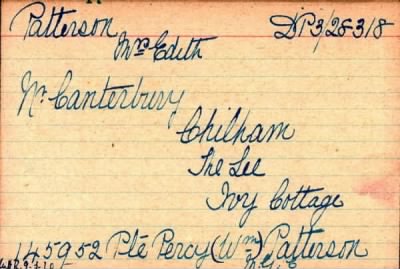 Patterson D.P.3/28318
Mrs Edith
Nr Canterbury
Chilham
The Lee
Ivy Cottage
145952 Pte Percy (Wm) Patterson